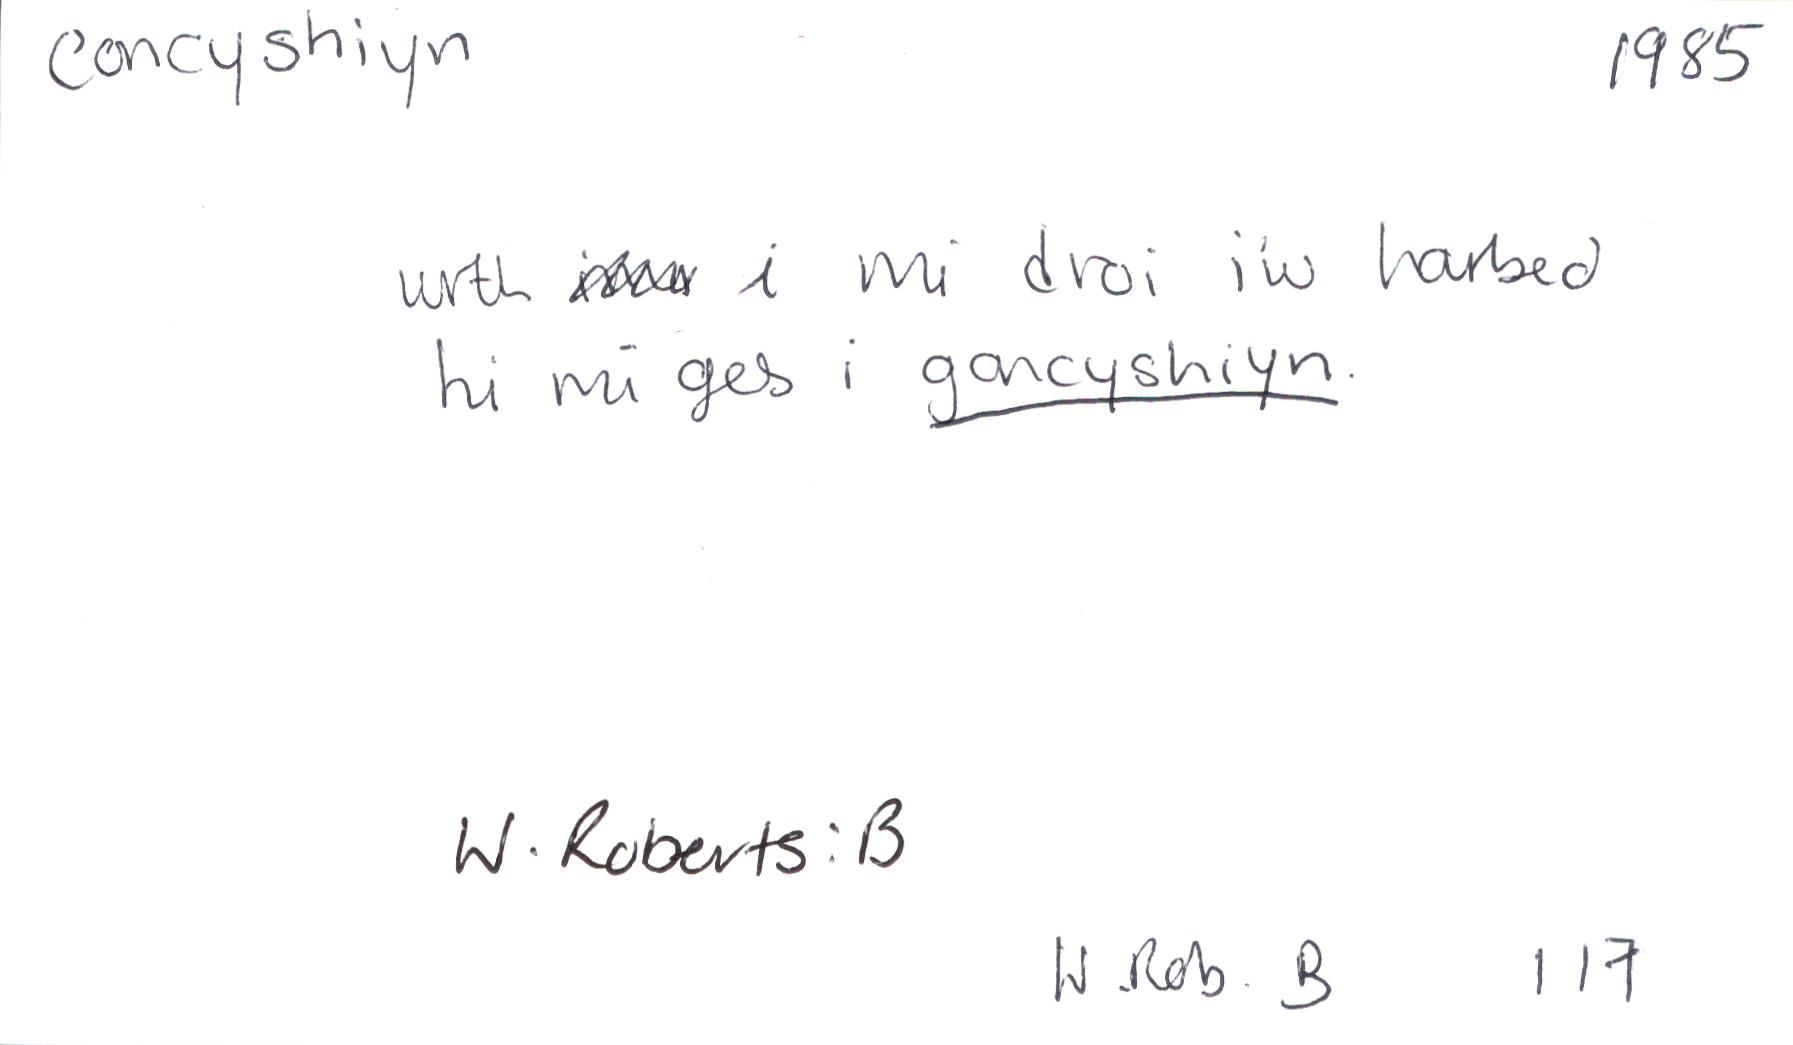 concyshiyn 1985
wrth i mi droi i'w harbed
hi mi ges i goncyshiyn.
W. Roberts: B
W. Rob. B 117